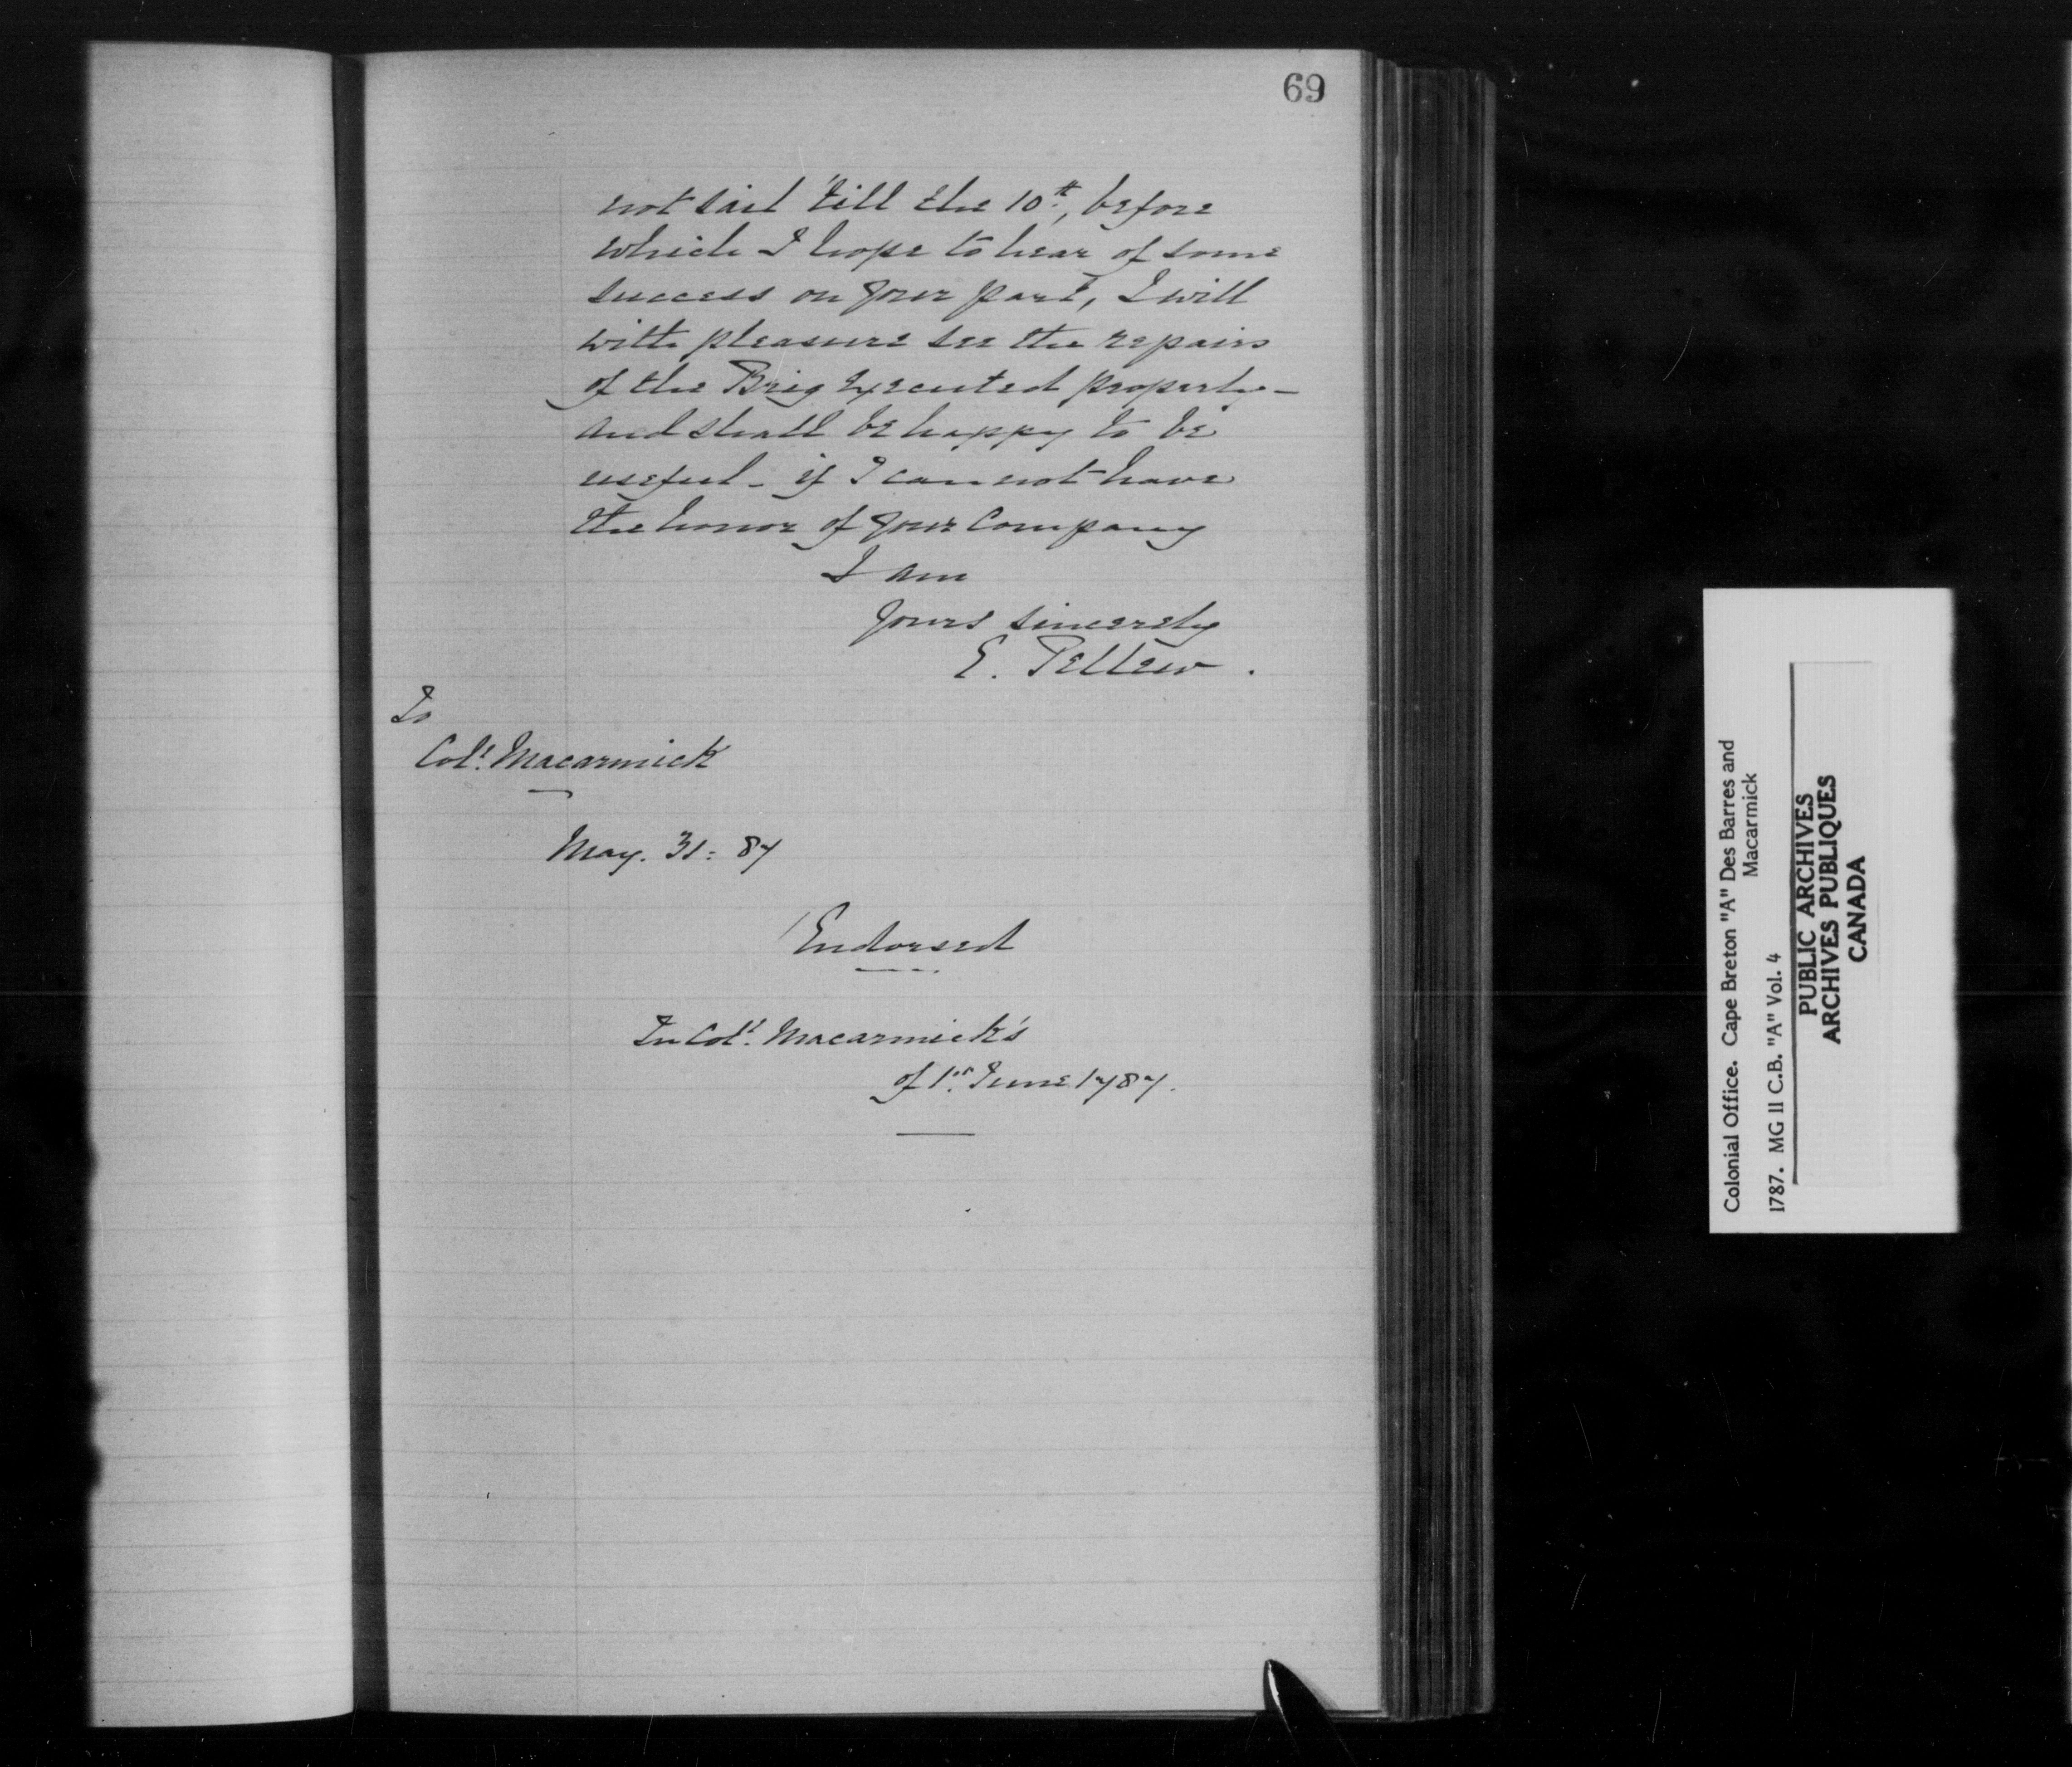 69
not sail 'till the 10th, before
which I hope to hear of some
success on your part, I will
with pleasure see the repairs
of the Brig Executed properly -
and shall be happy to be
useful - if I can not have
the honor of your Company
I am
Yours sincerely
E. Pellew.
To
Coll. Macarmick
May. 31: 87
Endorsed
In Coll. Macarmick's
of 1st June 1787.
Colonial Office. Cape Breton "A" Des Barres and
Macarmick
1787. MG 11 C.B. "A" Vol. 4
PUBLIC ARCHIVES
ARCHIVES PUBLIQUES
CANADA